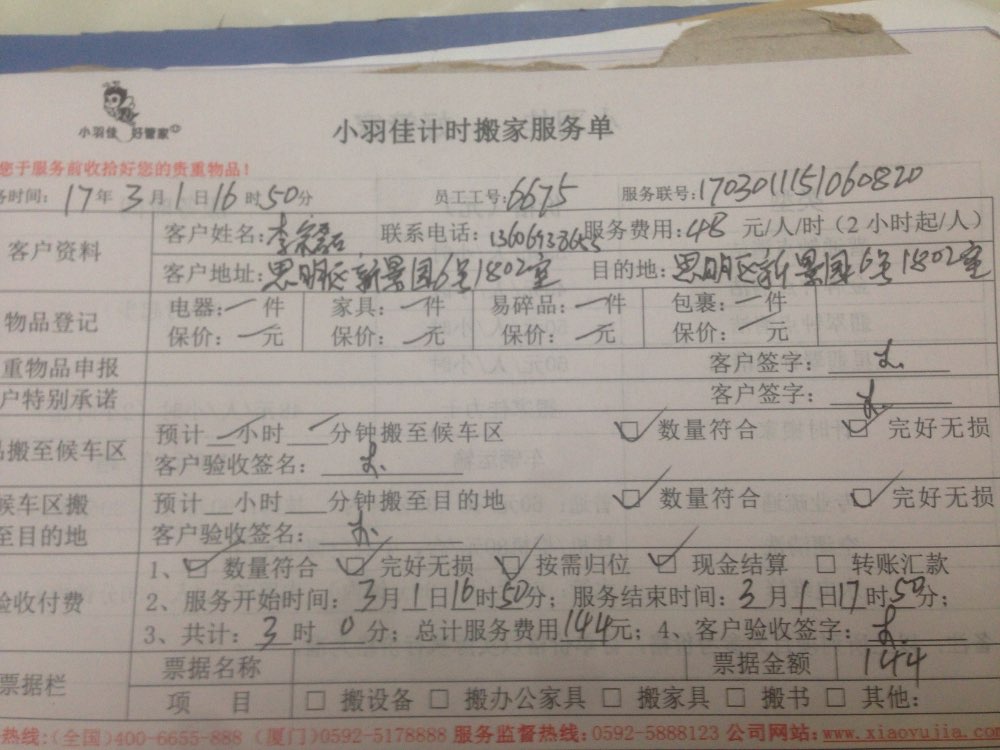 小羽佳 好管家
小羽佳计时搬家服务单
您于服务前收拾好您的贵重物品!
务时间: 17年3月1日16时50分 员工工号: 6675 服务联号: 170301151060820
客户资料 客户姓名: 李 联系电话: 13606938655 服务费用: 48 元/人/时 (2 小时起/人)
客户地址: 思明区新景园6号1802室 目的地: 思明区新景园6号1802室
物品登记 电器: 一件 家具: 一件 易碎品: 一件 包裹: 一件
保价: 一元 保价: 一元 保价: 一元 保价: 一元
重物品申报 客户签字:
户特别承诺 客户签字:
品搬至候车区 预计 一小时 一分钟搬至候车区 ☑ 数量符合 ☑ 完好无损
客户验收签名:
候车区搬至目的地 预计 一小时 分钟搬至目的地 ☑ 数量符合 ☑ 完好无损
客户验收签名:
验收付费 1、☑ 数量符合 ☑ 完好无损 ☑ 按需归位 ☑ 现金结算 □ 转账汇款
2、服务开始时间: 3月1日16时50分; 服务结束时间: 3月1日17时50分;
3、共计: 3时0分; 总计服务费用144元; 4、客户验收签字:
票据栏 票据名称 票据金额 144
项 目 □ 搬设备 □ 搬办公家具 □ 搬家具 □ 搬书 □ 其他:
热线: (全国)400-6655-888 (厦门)0592-5178888 服务监督热线: 0592-5888123 公司网站: www.xiaoyujia.com